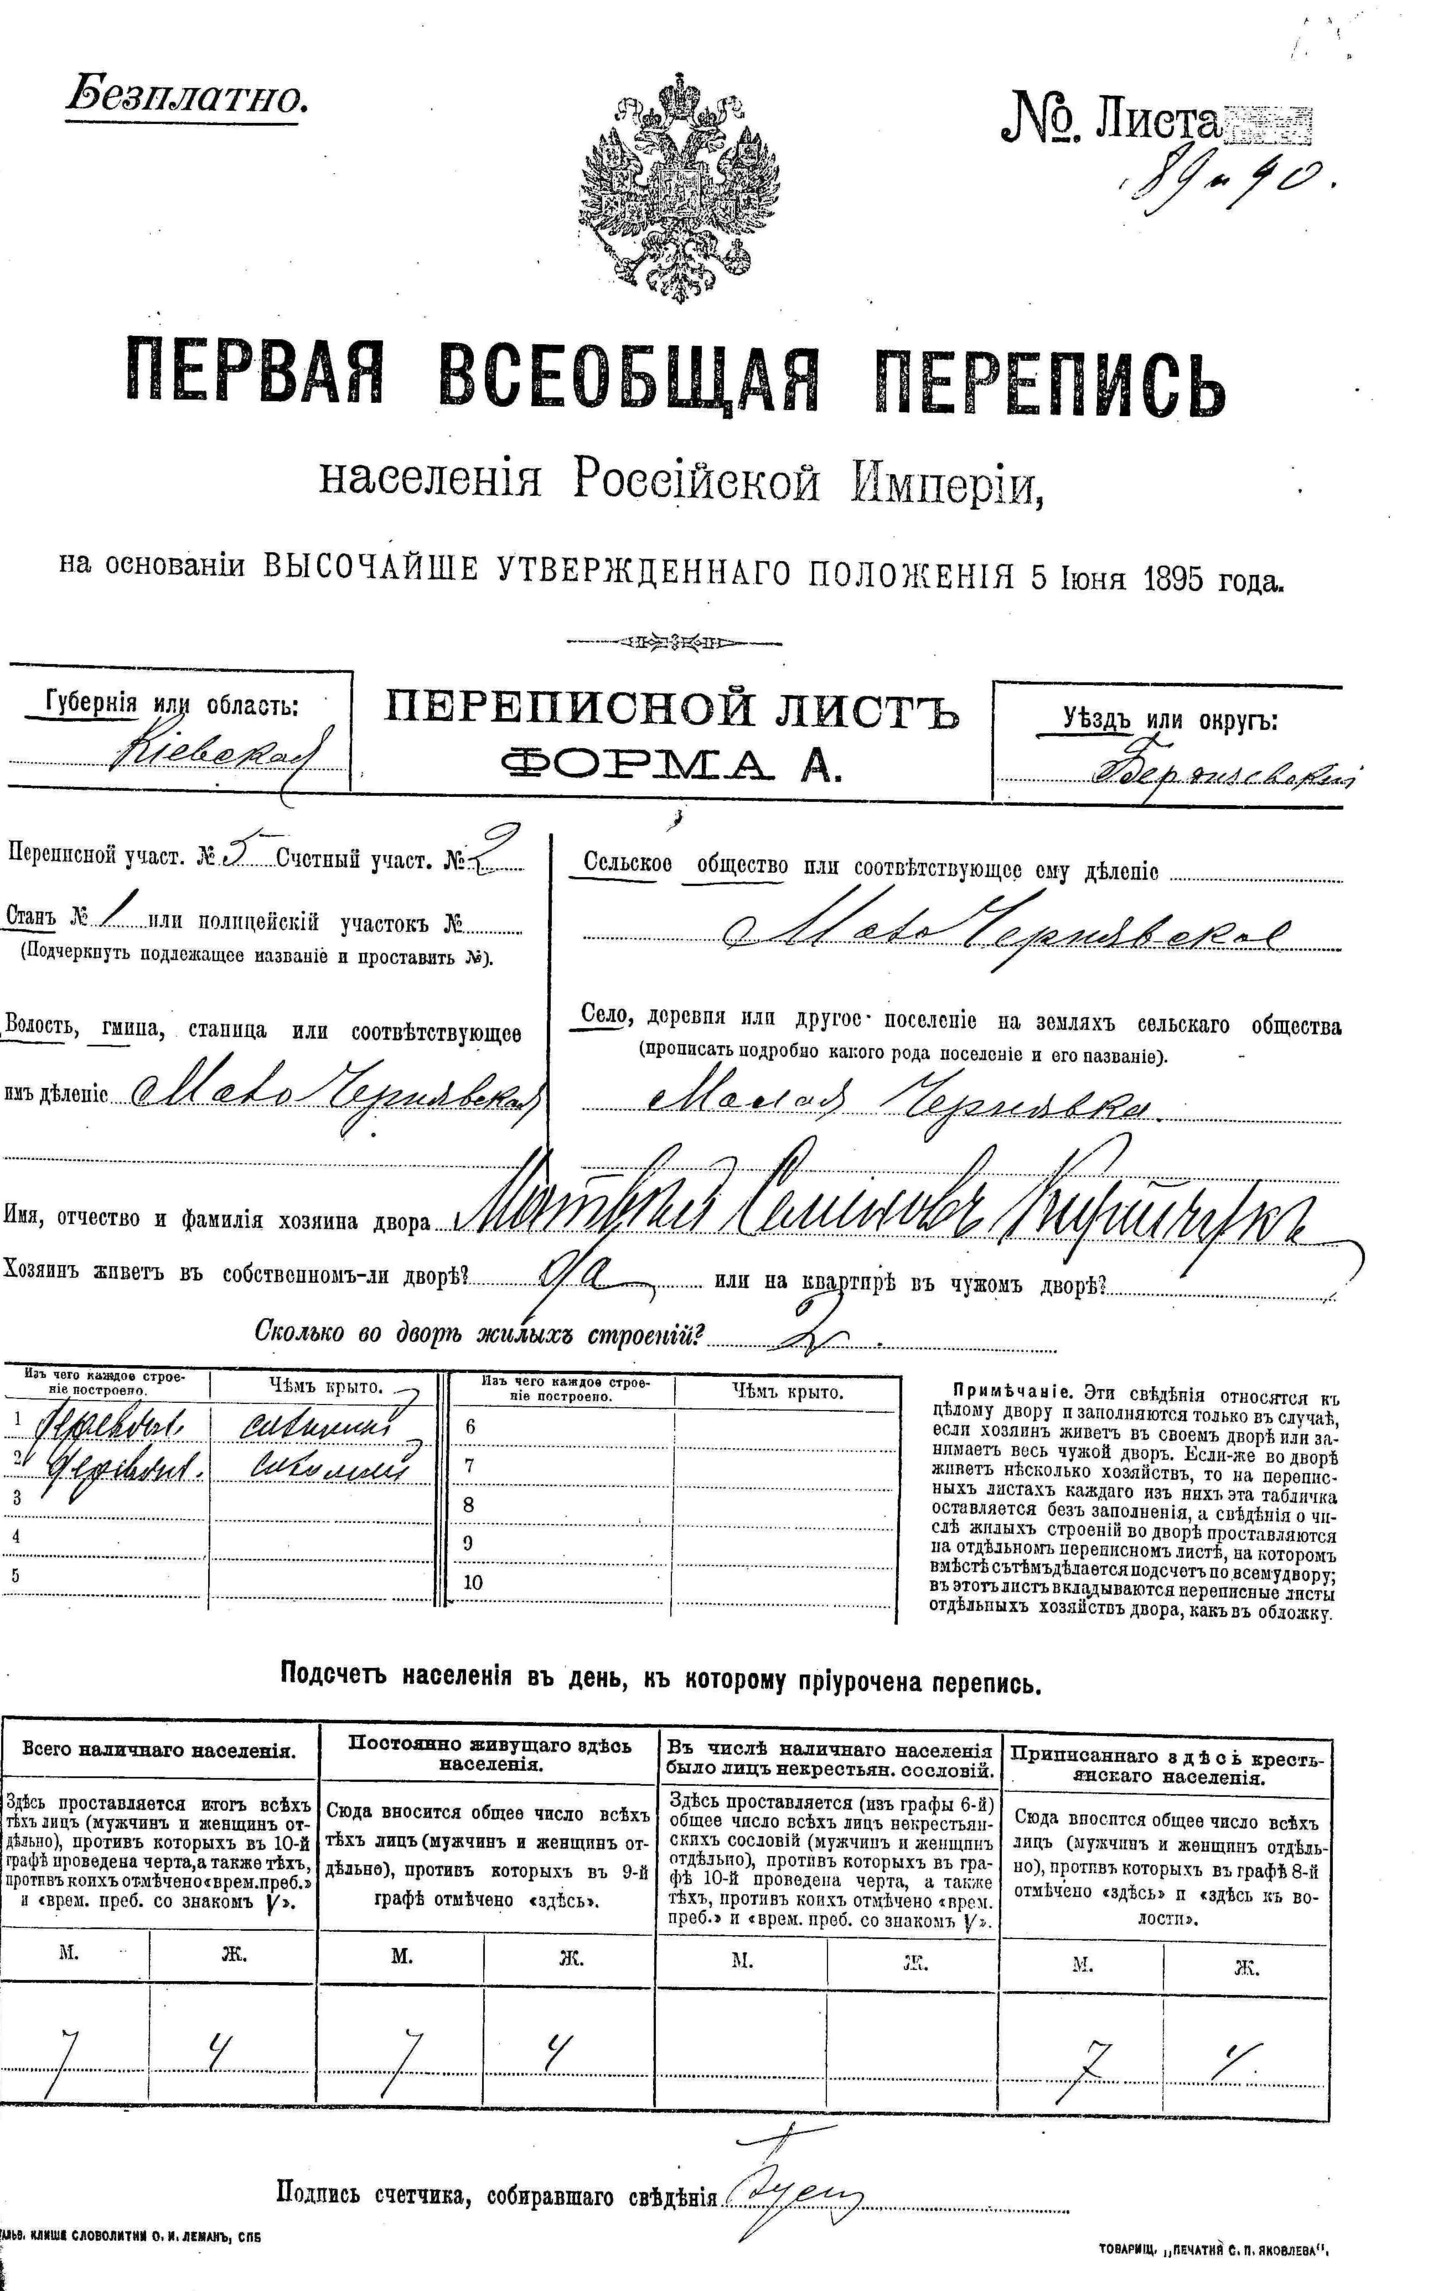 Безплатно.
№. Листа
89 и 90.
ПЕРВАЯ ВСЕОБЩАЯ ПЕРЕПИСЬ
населенія Россійской Имперіи,
на основаніи ВЫСОЧАЙШЕ УТВЕРЖДЕННАГО ПОЛОЖЕНІЯ 5 Іюня 1895 года.
Губернія или область:
Кіевская
ПЕРЕПИСНОЙ ЛИСТЪ
ФОРМА А.
Уѣздъ или округъ:
Бердичевскій
Переписной участ. № 5 Счетный участ. № 2
Станъ № 1 или полицейскій участокъ №
(Подчеркнуть подлежащее названіе и проставить №).
Волость, гмина, станица или соотвѣтствующее
имъ дѣленіе Мало Чернявская
Сельское общество или соотвѣтствующее ему дѣленіе
Мало Чернявское
Село, деревня или другое поселеніе на земляхъ сельскаго общества
(прописать подробно какого рода поселеніе и его названіе).
Малая Чернявка
Имя, отчество и фамилія хозяина двора
Хозяинъ живетъ въ собственномъ-ли дворѣ? да или на квартирѣ въ чужомъ дворѣ?
Сколько во дворѣ жилыхъ строеній? 2.
Изъ чего каждое строе-
ніе построено.
Чѣмъ крыто.
1 деревян. соломой
2 деревян. соломой
3
4
5
Изъ чего каждое строе-
ніе построено.
Чѣмъ крыто.
6
7
8
9
10
Примѣчаніе. Эти свѣдѣнія относятся къ
цѣлому двору и заполняются только въ случаѣ,
если хозяинъ живетъ въ своемъ дворѣ или за-
нимаетъ весь чужой дворъ. Если-же во дворѣ
живетъ нѣсколько хозяйствъ, то на перепис-
ныхъ листахъ каждаго изъ нихъ эта табличка
оставляется безъ заполненія, а свѣдѣнія о чи-
слѣ жилыхъ строеній во дворѣ проставляются
на отдѣльномъ переписномъ листѣ, на которомъ
вмѣстѣ съ тѣмъ дѣлается подсчетъ по всему двору;
въ этотъ листъ вкладываются переписные листы
отдѣльныхъ хозяйствъ двора, какъ въ обложку.
Подсчетъ населенія въ день, къ которому пріурочена перепись.
Всего наличнаго населенія.
Здѣсь проставляется итогъ всѣхъ
тѣхъ лицъ (мужчинъ и женщинъ от-
дѣльно), противъ которыхъ въ 10-й
графѣ проведена черта, а также тѣхъ,
противъ коихъ отмѣчено «врем. преб.»
и «врем. преб. со знакомъ V».
М. Ж.
7 4
Постоянно живущаго здѣсь
населенія.
Сюда вносится общее число всѣхъ
тѣхъ лицъ (мужчинъ и женщинъ от-
дѣльно), противъ которыхъ въ 9-й
графѣ отмѣчено «здѣсь».
М. Ж.
7 4
Въ числѣ наличнаго населенія
было лицъ некрестьян. сословій.
Здѣсь проставляется (изъ графы 6-й)
общее число всѣхъ лицъ некрестьян-
скихъ сословій (мужчинъ и женщинъ
отдѣльно), противъ которыхъ въ гра-
фѣ 10-й проведена черта, а также
тѣхъ, противъ коихъ отмѣчено «врем.
преб.» и «врем. преб. со знакомъ V».
М. Ж.
Приписаннаго здѣсь кресть-
янскаго населенія.
Сюда вносится общее число всѣхъ
лицъ (мужчинъ и женщинъ отдѣль-
но), противъ которыхъ въ графѣ 8-й
отмѣчено «здѣсь» и «здѣсь къ во-
лости».
М. Ж.
7 4
Подпись счетчика, собиравшаго свѣдѣнія
КЛИШЕ СЛОВОЛИТНИ О. И. ЛЕМАНЪ, СПБ
ТОВАРИЩ. „ПЕЧАТНЯ С. П. ЯКОВЛЕВА".